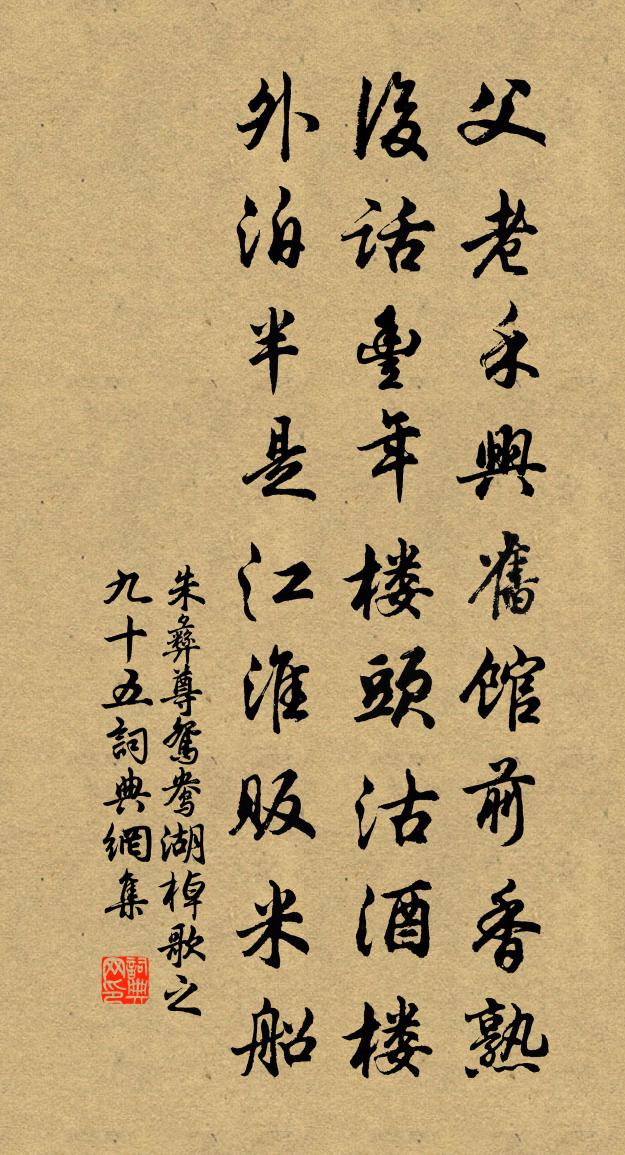 父老禾興舊館前香熟
後話豐年楼頭沽酒楼
外泊半是江淮販米船
朱彝尊鴛鴦湖棹歌之
九十五詞典網集
詞典
网印